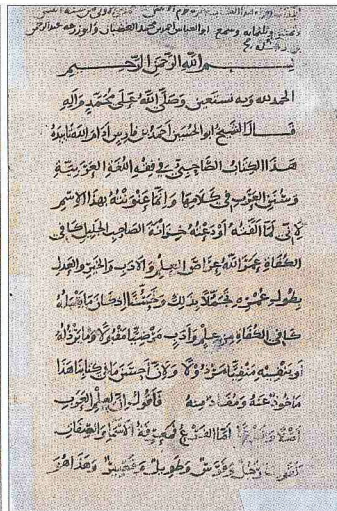 وسمع ابو العباس احمد بن عبد
بسم الله الرحمن الرحيم
الحمد لله وبه نستعين وصلى الله على محمد وآله
قال الشيخ ابو الحسين احمد بن فارس ادام الله تاييده
هذا الكتاب الصاحبي في فقه اللغة العربية
وسنن العرب في كلامها وانما عنونته بهذا الاسم
لاني لما الفته اودعته خزانة الصاحب الجليل كافي
الكفاة عمر الله عراص العلم والادب والخير والعدل
بطول عمره تجملا بذلك وتحسنا اذ كان ما يقبله
كافي الكفاة من علم وادب مرضيا مقبولا وما يرذله
او ينفيه منفيا مرذولا ولان احسن ما في كتابنا هذا
ماخوذ عنه ومفاد منه فاقول ان لعلم العرب
اصلا وفرعا اما الفرع فمعرفة الاسماء والصفات
كقولنا رجل وفرس وطويل وقصير وهذا هو